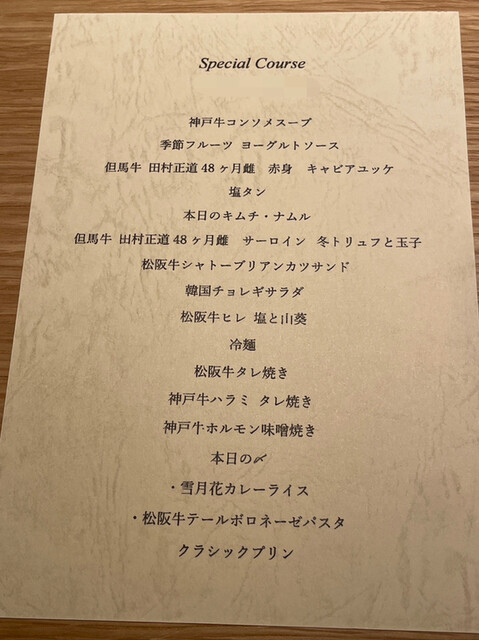 Special Course
神戸牛コンソメスープ
季節フルーツ ヨーグルトソース
但馬牛 田村正道 48 ヶ月雌 赤身 キャビアユッケ
塩タン
本日のキムチ・ナムル
但馬牛 田村正道 48 ヶ月雌 サーロイン 冬トリュフと玉子
松阪牛シャトーブリアンカツサンド
韓国チョレギサラダ
松阪牛ヒレ 塩と山葵
冷麺
松阪牛タレ焼き
神戸牛ハラミ タレ焼き
神戸牛ホルモン味噌焼き
本日の〆
・雪月花カレーライス
・松阪牛テールボロネーゼパスタ
クラシックプリン